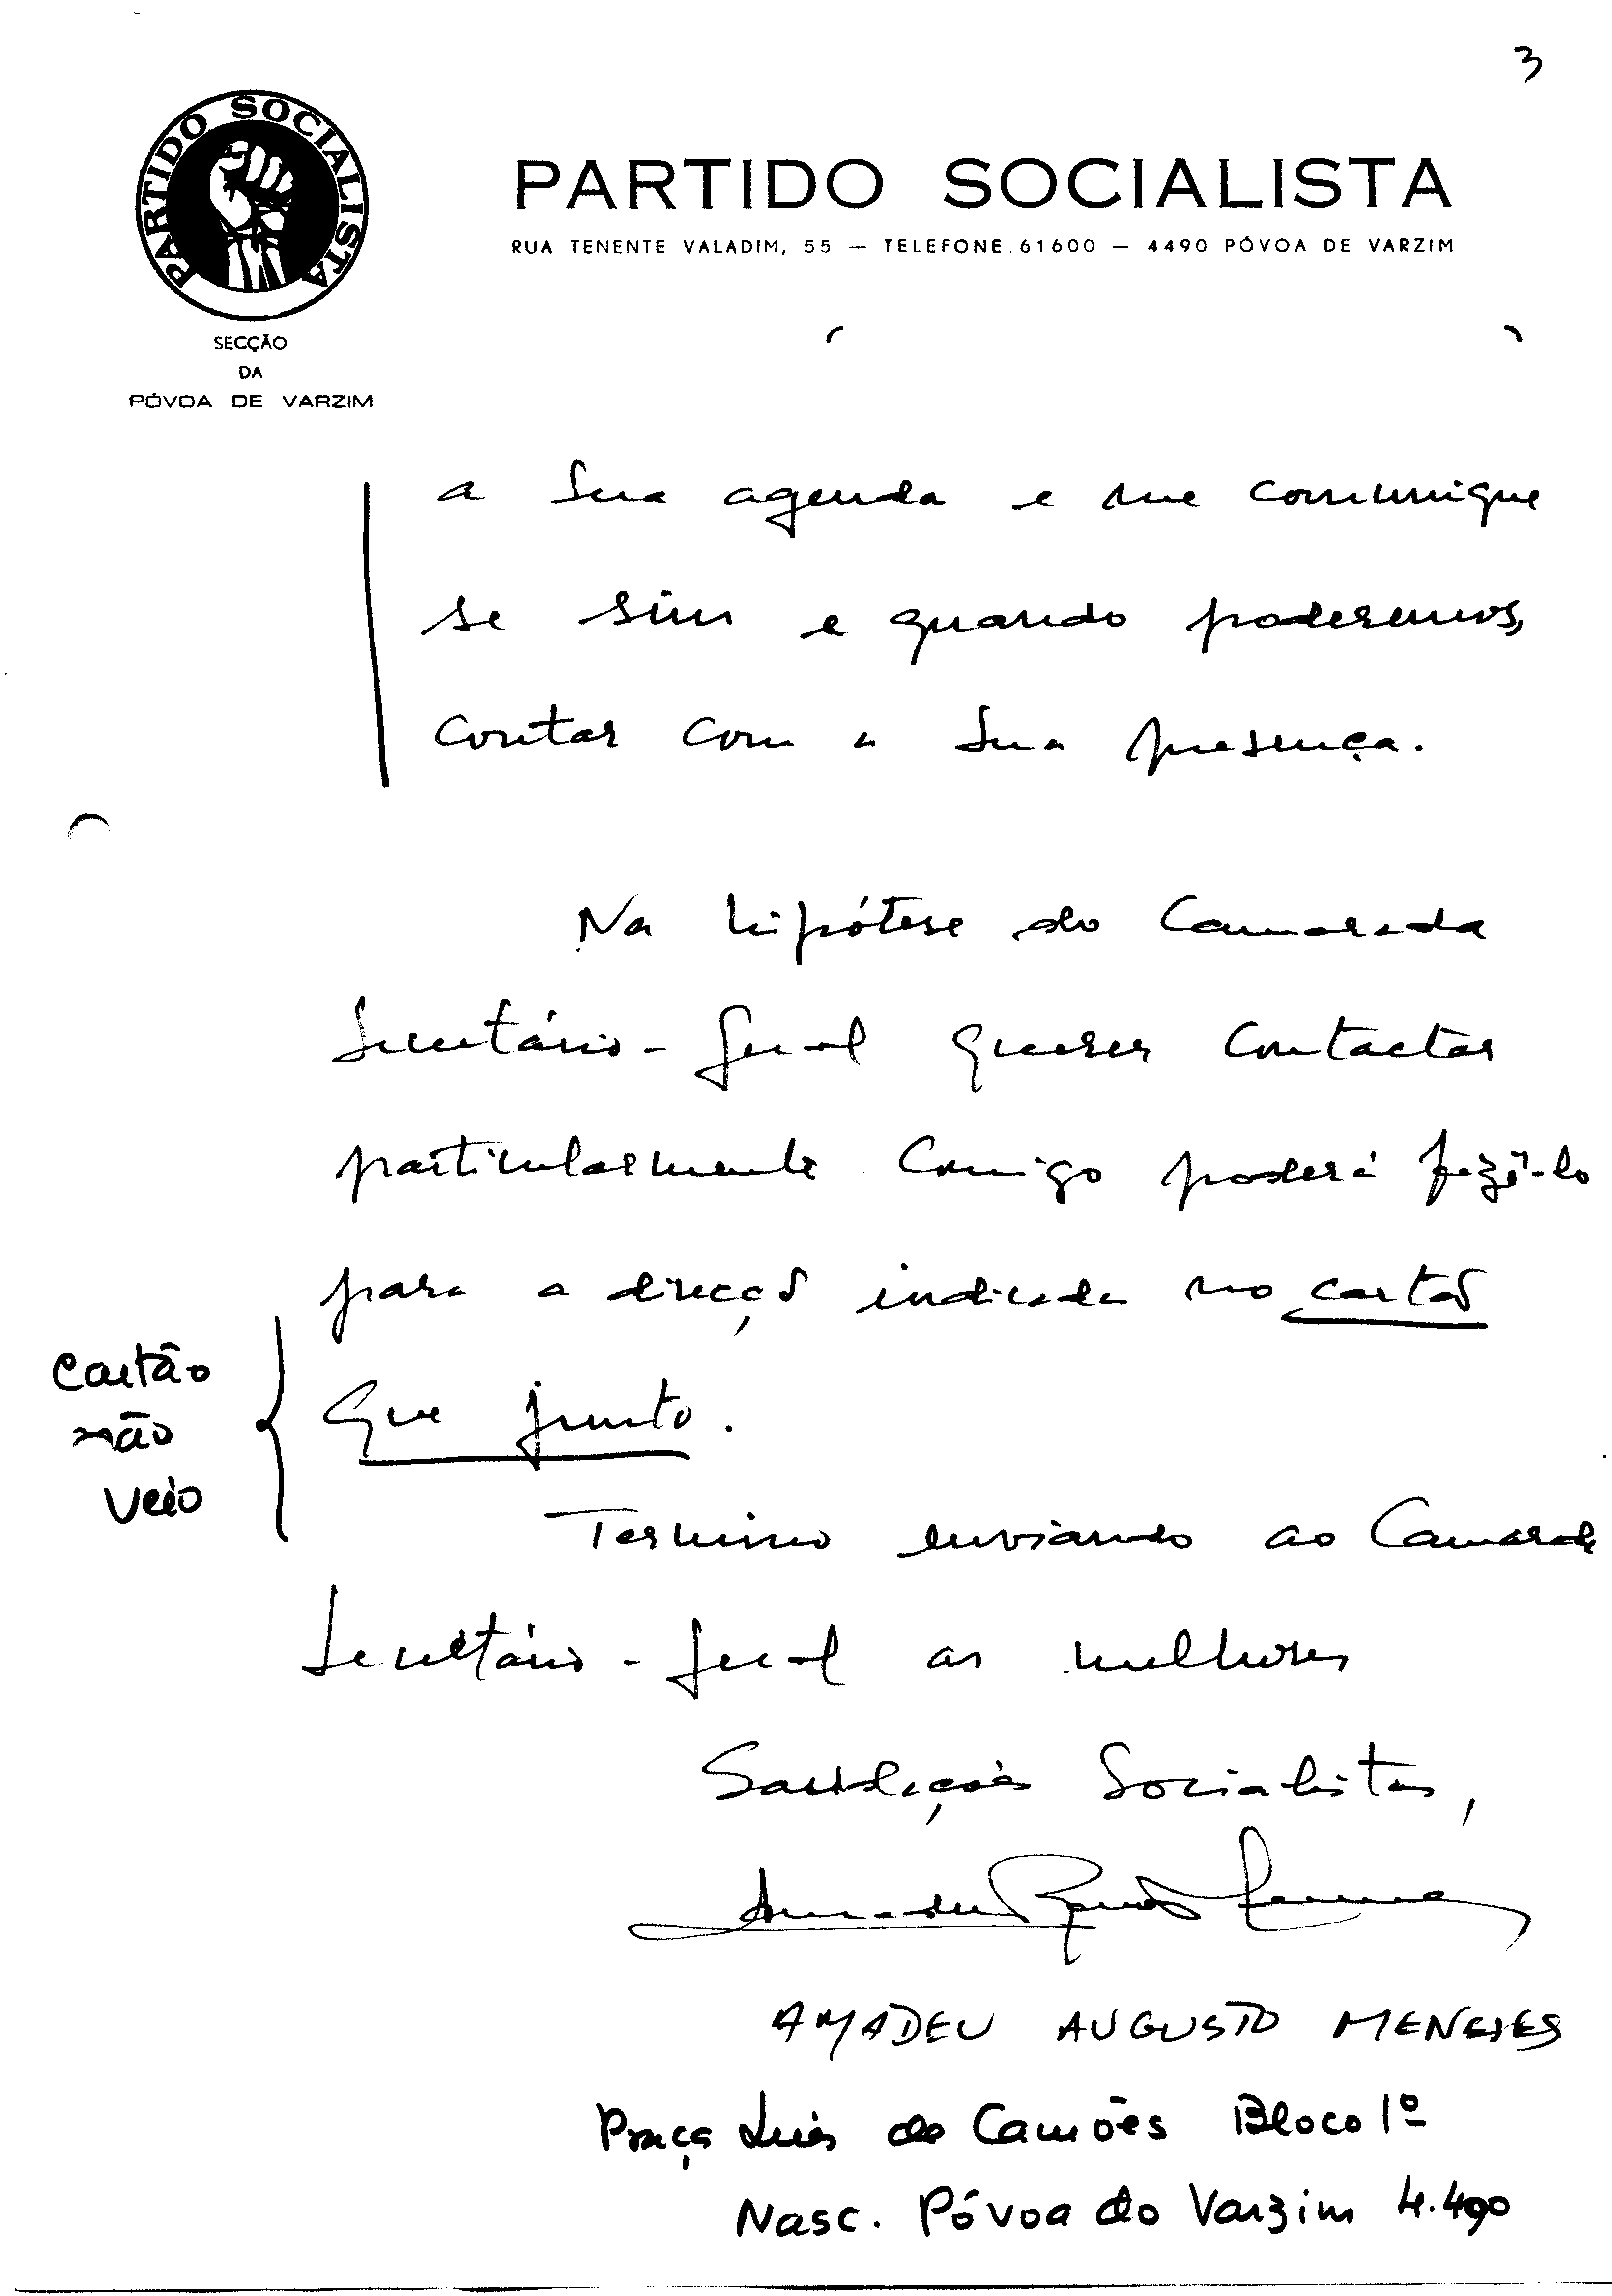 3
PARTIDO SOCIALISTA
PARTIDO SOCIALISTA
RUA TENENTE VALADIM, 55 — TELEFONE 61600 — 4490 PÓVOA DE VARZIM
SECÇÃO
DA
PÓVOA DE VARZIM
a Sua agenda e me comunique
se sim e quando poderemos,
contar com a Sua presença.
Na hipótese do Camarada
Secretário-Geral querer contactar
particularmente comigo poderá fazê-lo
para a direcção indicada no cartão
que junto.
Cartão
não
veio
Termino enviando ao Camarada
Secretário-Geral as melhores
Saudações Socialistas,
AMADEU AUGUSTO MENESES
Praça Luís de Camões Bloco 1º
Nasc. Póvoa do Varzim 4.490